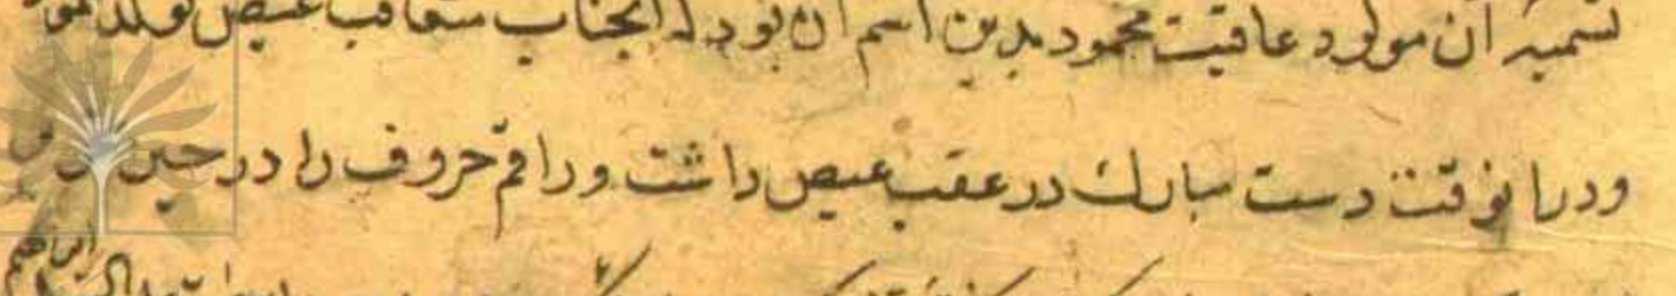 تسمیه آن مولود عاقبت محمود بدین اسم آن بود که آنجناب متعاقب عیص تولد نمود
و در آنوقت دست مبارک در عقب عیص داشت و راقم حروف را در حین
ابراهیم